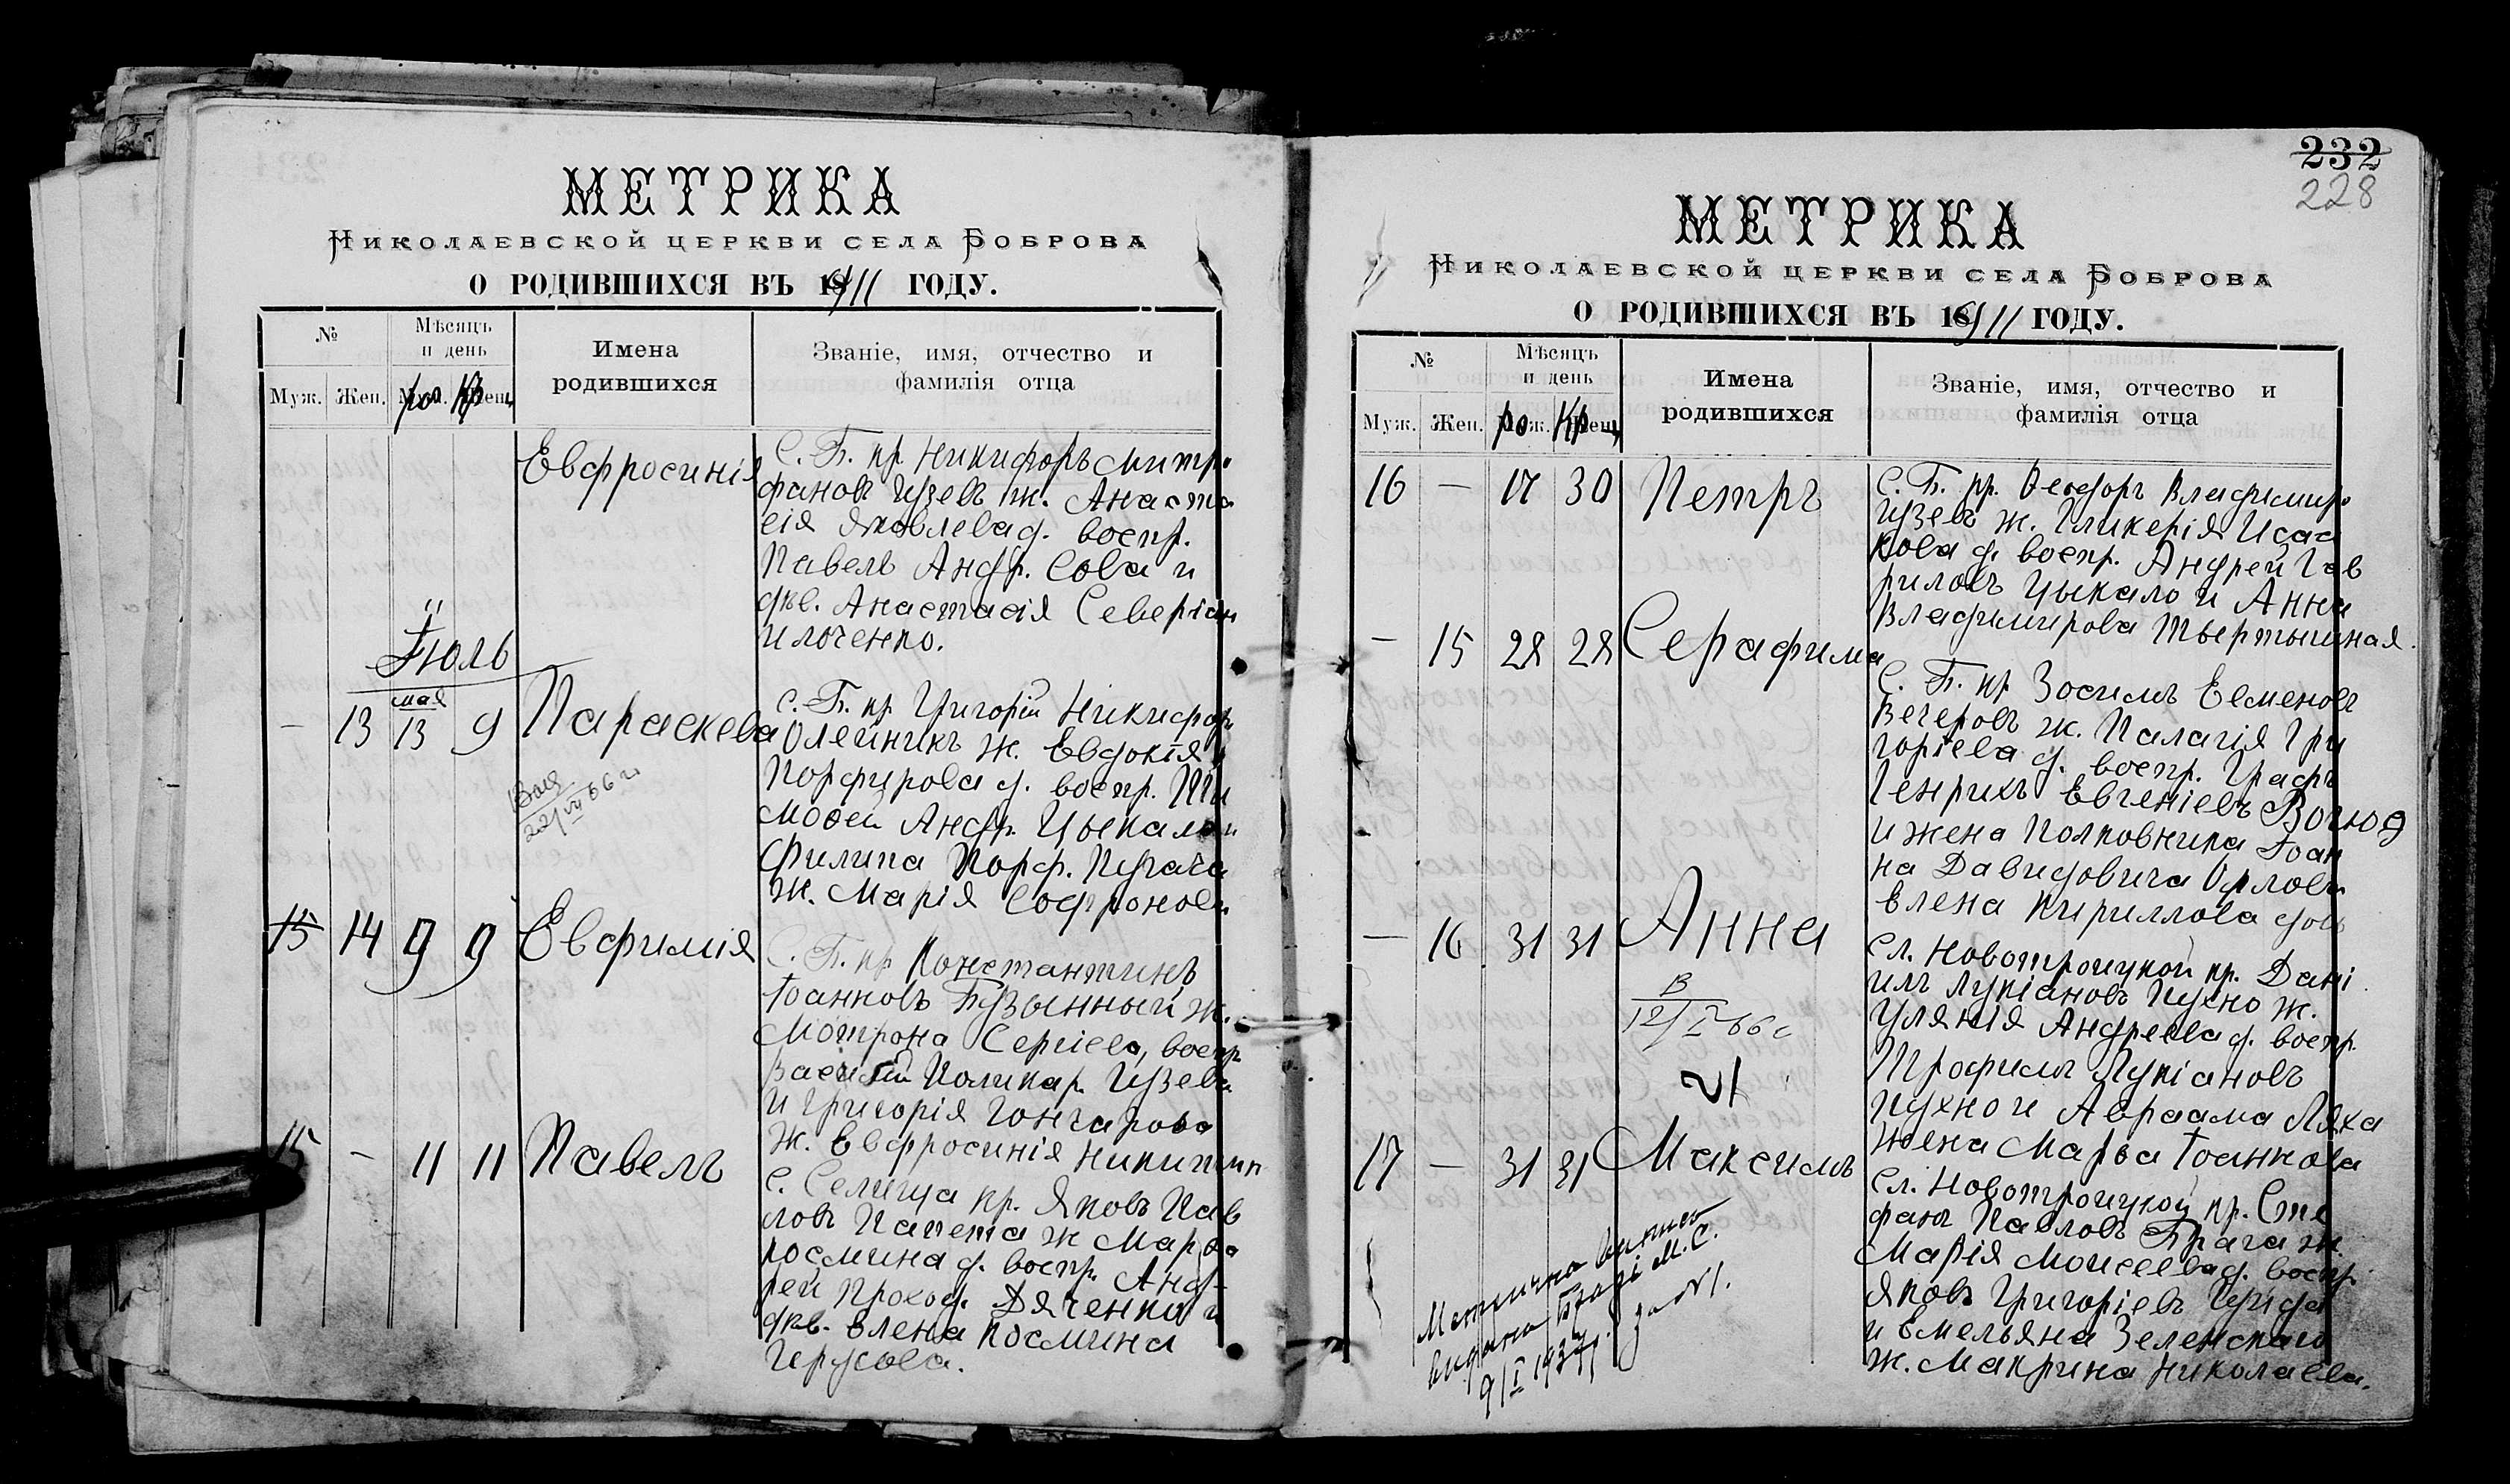 МЕТРИКА
Николаевской церкви села Боброва
О РОДИВШИХСЯ ВЪ 1911 ГОДУ.
№
Мѣсяцъ и день
Имена родившихся
Званіе, имя, отчество и фамилія отца
Муж. Жен. ро Кр
Евфросинія
С. Б. кр. Никифоръ Митро
фановъ Гузевъ ж. Анаста
сія Яковлева д. воспр.
Павелъ Андр. Сова и
дѣв. Анастасія Северіан
Илюченко.
Іюль
мая
— 13 13 9 Параскева
С. Б. кр. Григорій Никифор
Олейникъ ж. Евдокія
Порфирова д. воспр. Ти
мофей Андр. Цыкало и
Филипа Порф. Пугача
ж. Марія Софронова
22/VI 66 г.
15 14 9 9 Евфимія
С. Б. кр. Константинъ
Іоанновъ Бузынный ж.
Мотрона Сергіева, воспр
Василій Поликар. Гузевъ
и Григорія Гончарова
ж. Евфросинія Никитин
15 — 11 11 Павелъ
С. Селища кр. Яковъ Пав
ловъ Папета ж Марфа
Космина д. воспр. Анд-
рей Проход. Дяченко и
дѣв. Елена Космина
Герусова.
232
228
МЕТРИКА
Николаевской церкви села Боброва
О РОДИВШИХСЯ ВЪ 1911 ГОДУ.
№
Мѣсяцъ и день
Имена родившихся
Званіе, имя, отчество и фамилія отца
Муж. Жен. ро Кр
16 — 17 30 Петръ
С. Б. кр. Феодоръ Владимир
Гузевъ ж. Гликерія Исаа
кова д. воспр. Андрей Гав
риловъ Цыкало и Анна
Владимирова
— 15 28 28 Серафима
С. Б. кр Зосимъ Евменовъ
Вечеровъ ж. Палагія Гри
горіева д. воспр. Графъ
Генрихъ Евгеніевъ
и жена Полковника Іоан
на Давидовича Орлова
Елена Кириллова
— 16 31 31 Анна
Сл. Новотроицкой кр. Дані
илъ Лукіановъ Пухно ж.
Уляния Андреева д. воспр.
Трофимъ Лукіановъ
Пухно и Авраама Ляха
жена Марѳа Іоаннова
В
12/I 66 г
17 — 31 31 Максимъ
Сл. Новотроицкой кр. Сте
фанъ Павловъ Брага ж.
Марія Моисеева д. воспр.
Яковъ Григоріевъ
и Емельяна Зеленскаго
ж. Макрина Николаева.
Метричну виписъ
видано Бразі М. С.
9/I 1937 р. за № 1.